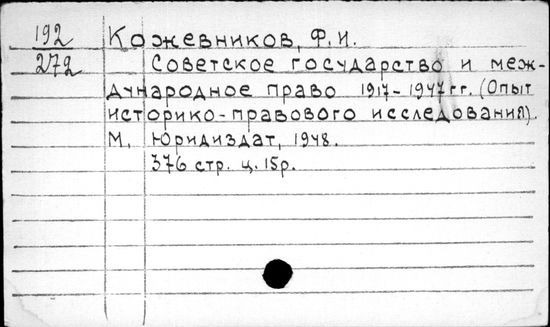 192 Кожевников, Ф.И.
272 Советское государство и меж-
дународное право 1917-1947 гг. (Опыт
историко-правового исследования).
М, Юридиздат, 1948.
376 стр. ц. 15р.